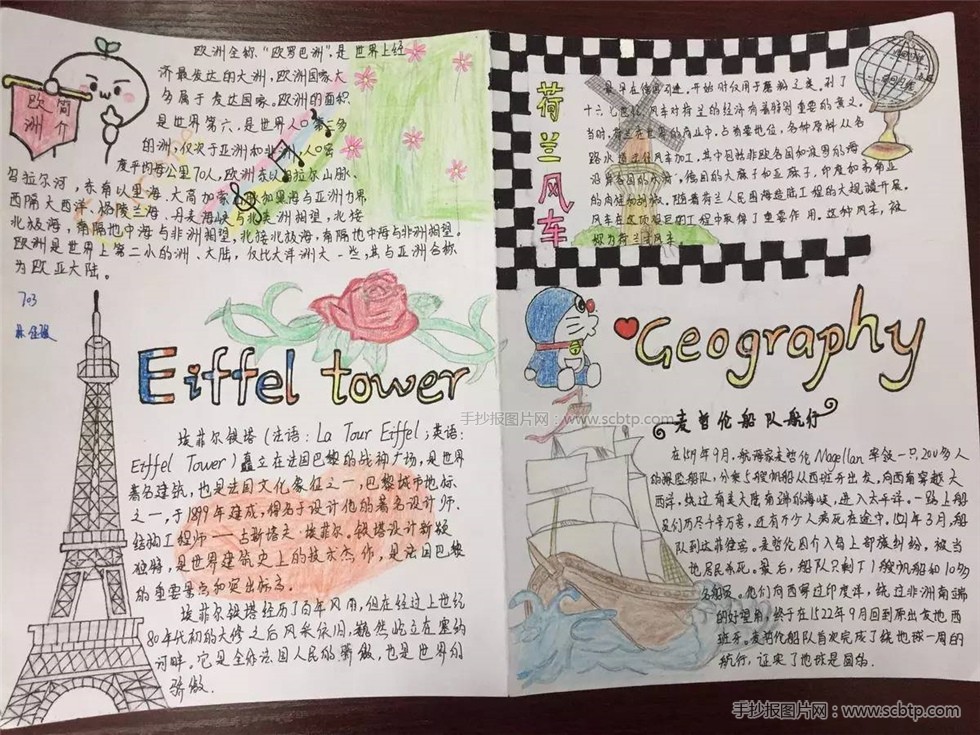 欧洲
简介
欧洲全称“欧罗巴洲”,是世界上经
济最发达的大洲,欧洲国家大
多属于发达国家。欧洲的面积
是世界第六,是世界人口第三多
的洲,仅次于亚洲和非洲,人口密
度平均每公里70人,欧洲东以乌拉尔山脉、
乌拉尔河,东南以里海、大高加索
和黑海与亚洲为界,
西隔大西洋、格陵兰海、丹麦海峡与北美洲相望,北接
北极海,南隔地中海与非洲相望。北接北极海,南隔地中海与非洲相望。
欧洲是世界上第二小的洲、大陆,仅比大洋洲大一些,其与亚洲合称
为欧亚大陆。
703
Eiffel tower
埃菲尔铁塔(法语:La Tour Eiffel;英语:
Eiffel Tower)矗立在法国巴黎的战神广场,是世界
著名建筑,也是法国文化象征之一,巴黎城市地标
之一,于1899年建成,得名于设计他的著名设计师、
结构工程师——古斯塔夫·埃菲尔。铁塔设计新颖
独特,是世界建筑史上的技术杰作,是法国巴黎
的重要景点和突出标志。
埃菲尔铁塔经历了百年风雨,但在经过上世纪
80年代初的大修之后风采依旧,巍然屹立在塞纳
河畔。它是全体法国人民的骄傲,也是世界的
骄傲.
荷兰风车
开始时仅用于磨粉之类。到了
十六七世纪,风车对荷兰的经济有着特别重要的意义。
当时,荷兰在世界的商业中,占首要地位,各种原料从各
路水道运往风车加工,其中包括北欧各国和波罗的海
沿岸各国的木材,德国的大麻子和亚麻子,印度和东南亚
的肉桂和胡椒。随着荷兰人民围海造陆工程的大规模开展,
风车在这项艰巨的工程中取得了重要作用。这种风车,被
称为荷兰式风车。
Geography
手抄报图片网:www.scbtp.com
麦哲伦船队航行
在1519年9月,航海家麦哲伦Magellan率领一只200多人
的探险船队,分乘5艘帆船从西班牙出发,向西南穿越大
西洋,绕过南美大陆南端的海峡,进入太平洋,一路上船
员们历尽千辛万苦,还有不少人病死在途中,1521年3月,船
队到达菲律宾。麦哲伦因介入岛上部族纠纷,被当
地居民杀死。最后,船队只剩下1艘帆船和10多
名船员。他们向西穿过印度洋,绕过非洲南端
的好望角,终于在1522年9月回到原出发地西
班牙。麦哲伦船队首次完成了绕地球一周的
航行,证实了地球是圆的.
手抄报图片网:www.scbtp.com